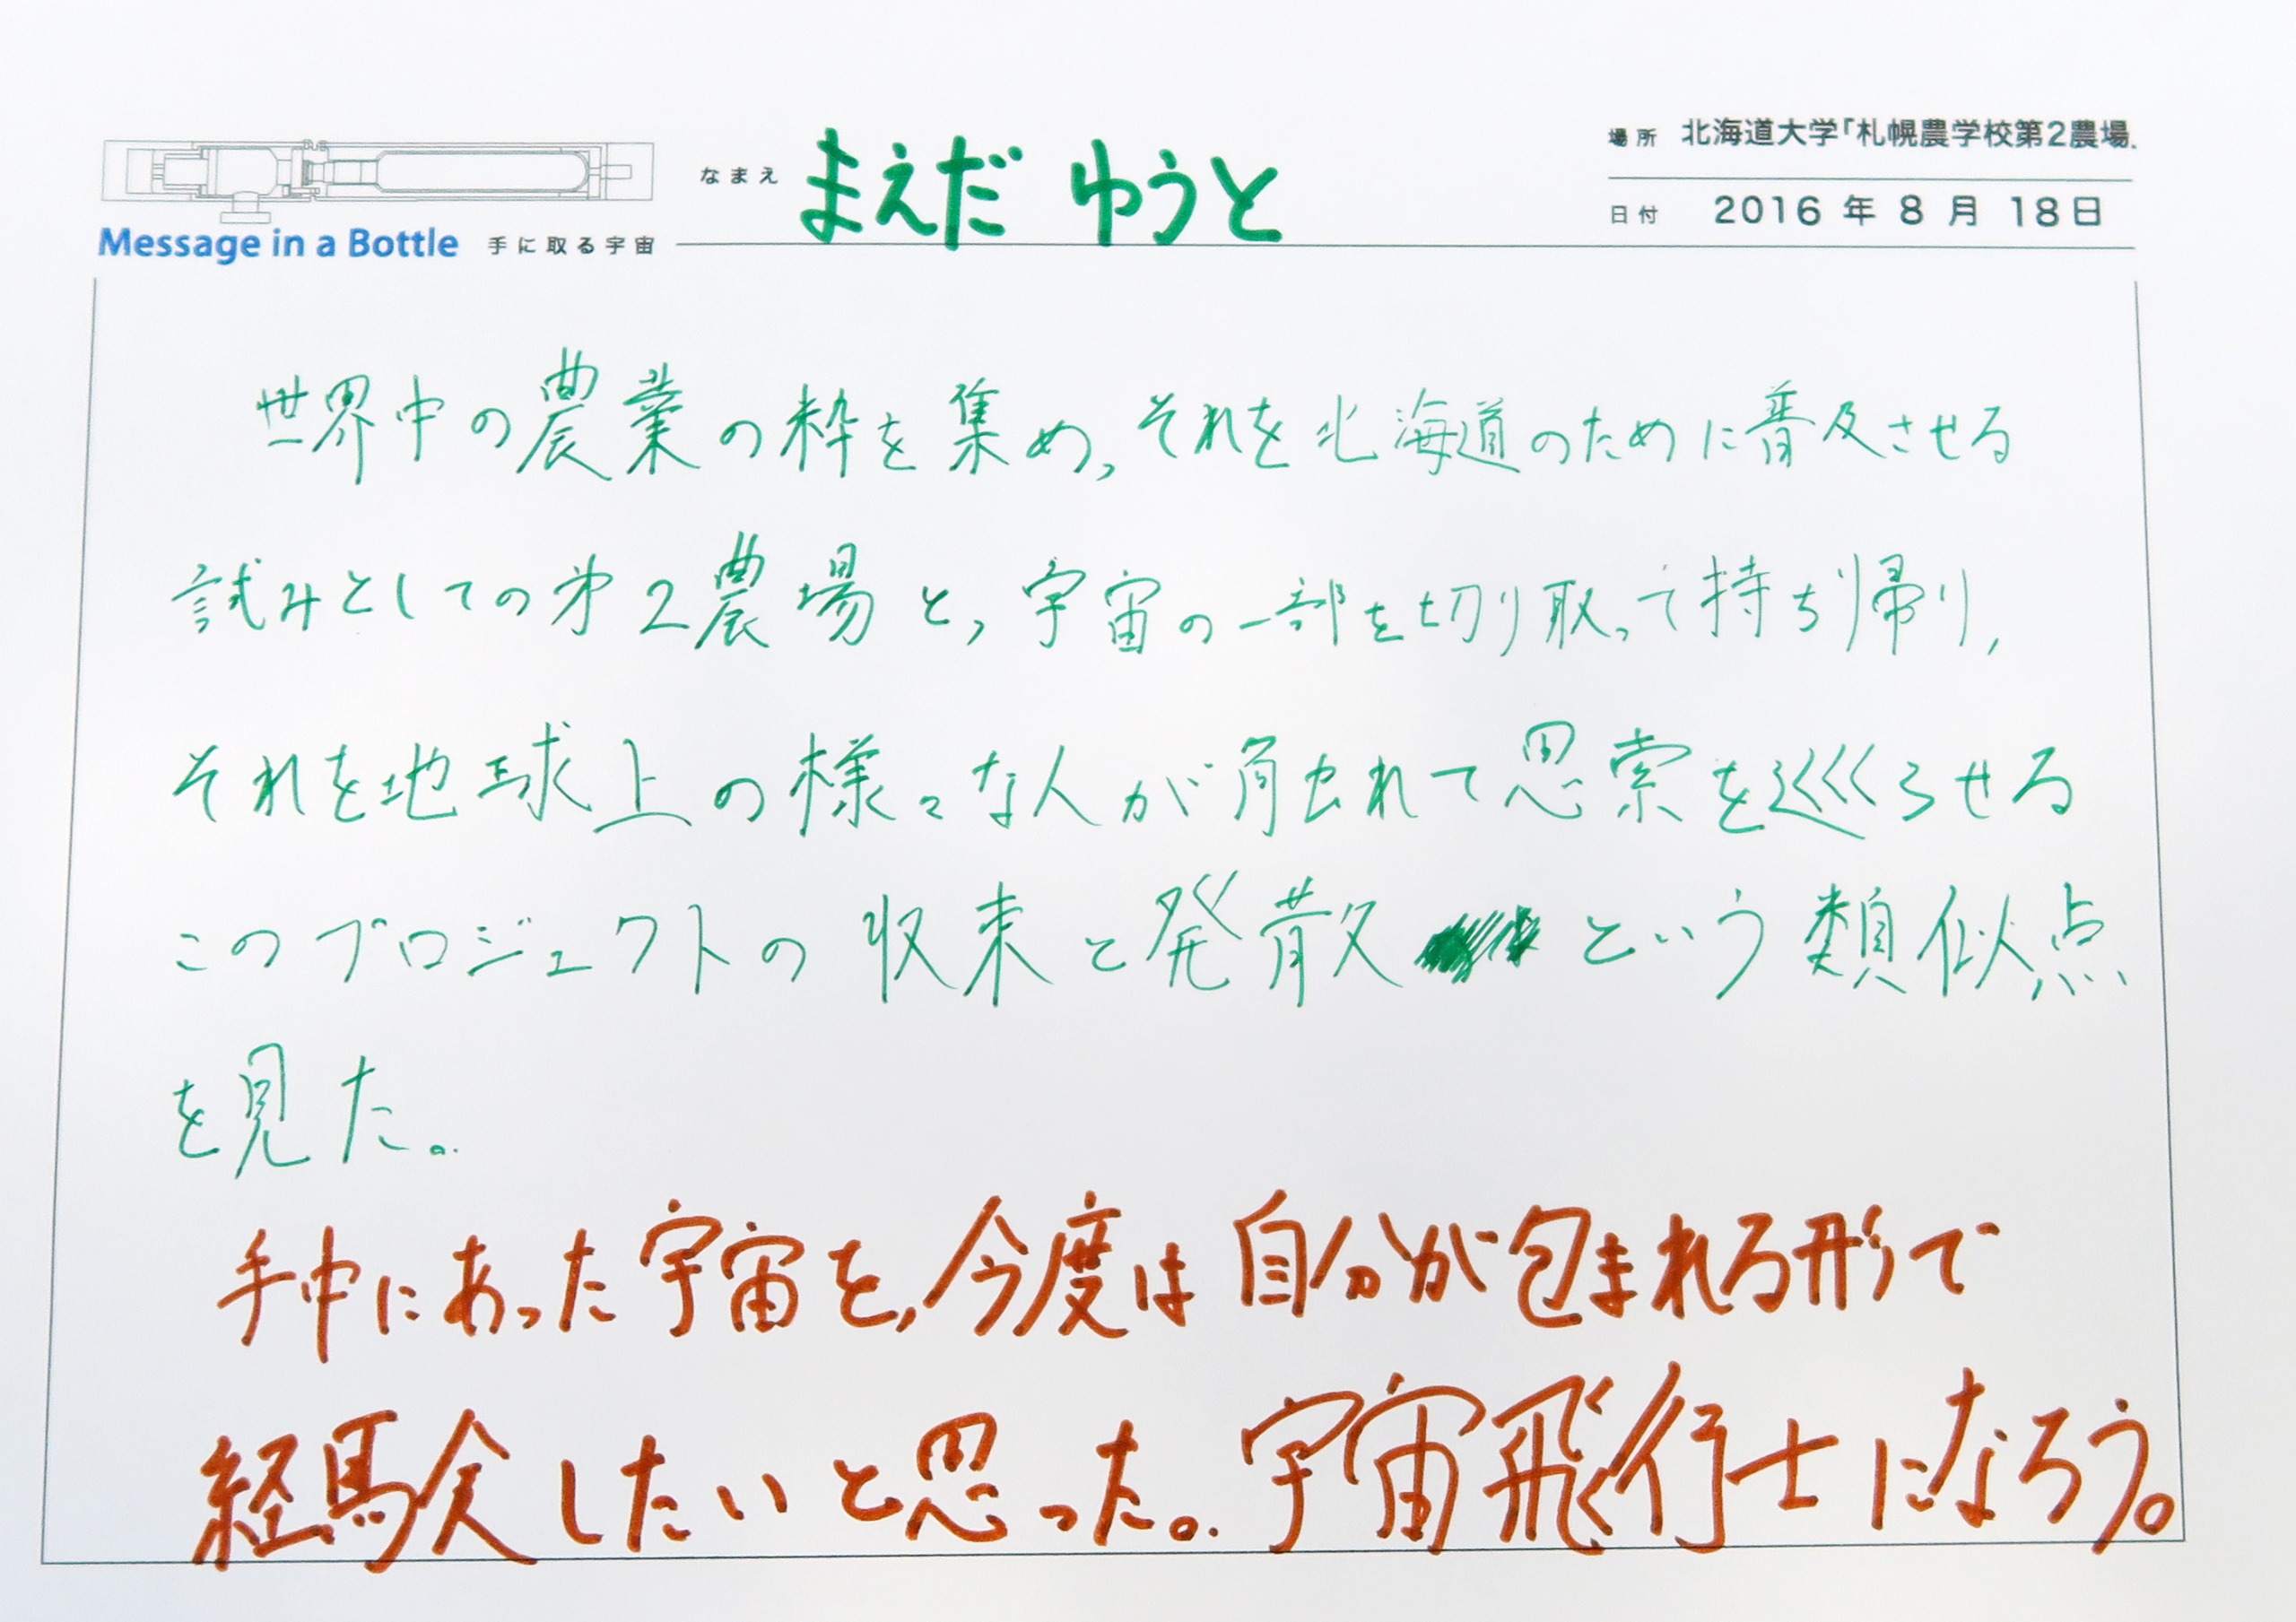 Message in a Bottle 手に取る宇宙
なまえ まえだ ゆうと
場所 北海道大学「札幌農学校第2農場.
日付 2016年8月18日
世界中の農業の粋を集め,それを北海道のために普及させる
試みとしての第2農場と,宇宙の一部を切り取って持ち帰り,
それを地球上の様々な人が触れて思索を巡らせる
このプロジェクトの収束と発散という類似点
を見た。
手中にあった宇宙を,今度は自分が包まれる形で
経験したいと思った。宇宙飛行士になろう。